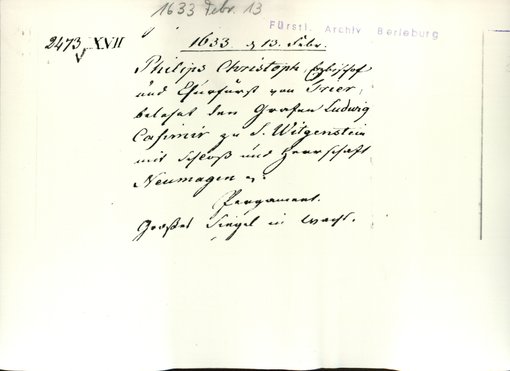 1633 Febr. 13
Fürstl. Archiv Berleburg
2473 XVII
1633 d 13. Febr.
Philips Christoph, Erzbischof
und Churfürst von Trier,
belehnt den Grafen Ludwig
Casimir zu S. Witgenstein
mit Schloß und Herrschaft
Neumagen
Pergament.
Großes Siegel in Wachs.